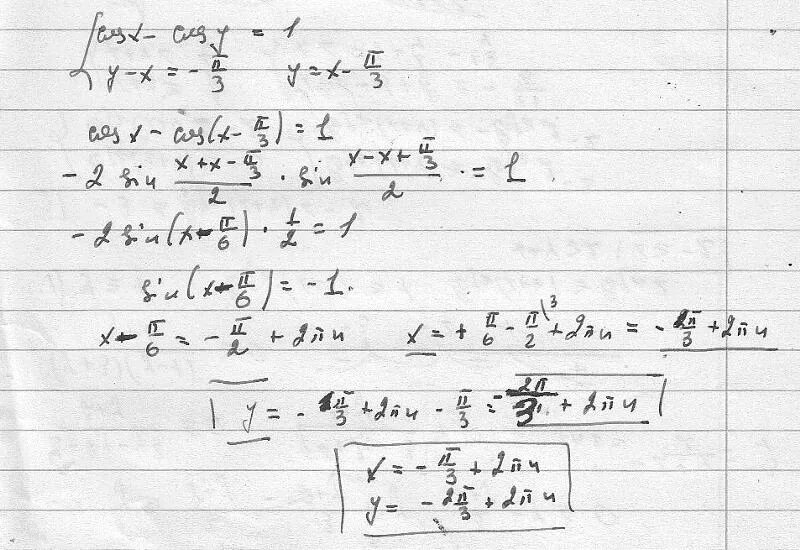 cos x - cos y = 1
y - x = - π/3 y = x - π/3
cos x - cos(x - π/3) = 1
- 2 sin (x + x - π/3)/2 · sin (x - x + π/3)/2 · = 1
- 2 sin(x - π/6) · 1/2 = 1
sin(x - π/6) = - 1.
x - π/6 = - π/2 + 2πn x = + π/6 - π/2 \3 + 2πn = - π/3 + 2πn
y = - π/3 + 2πn - π/3 = - 2π/3 + 2πn
x = - π/3 + 2πn
y = - 2π/3 + 2πn